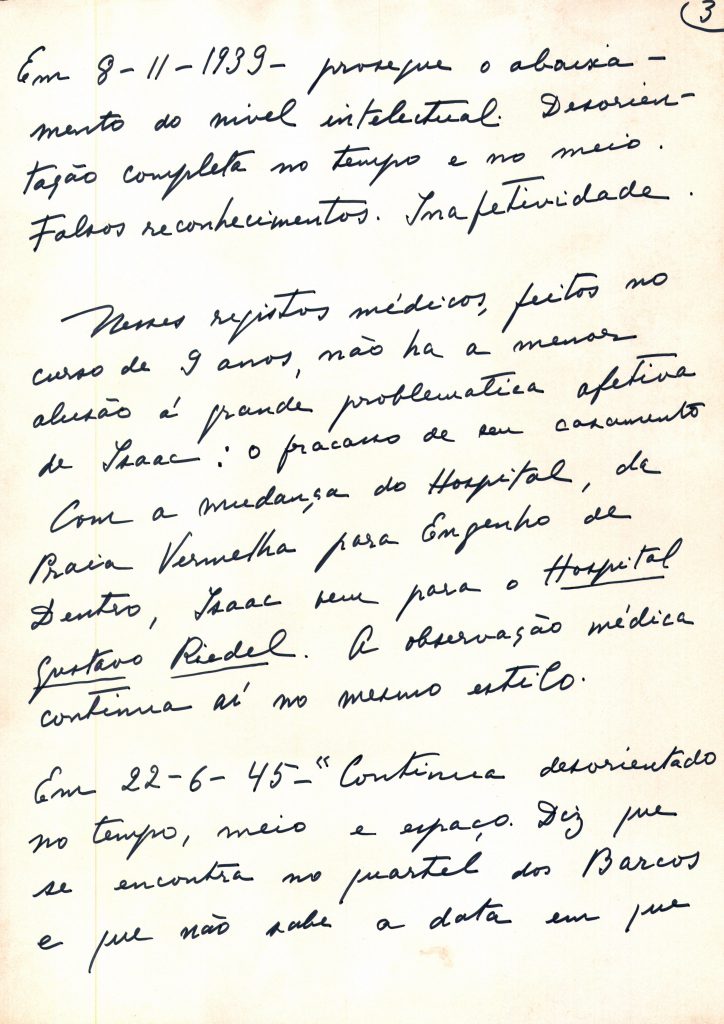 3
Em 8-11-1939- prosegue o abaixa-
mento do nivel intelectual. Desorien-
tação completa no tempo e no meio.
Falsos reconhecimentos. Inafetividade.
Nesses registos médicos, feitos no
curso de 9 anos, não ha a menor
alusão á grande problematica afetiva
de Isaac: o fracasso de seu casamento
Com a mudança do Hospital, da
Praia Vermelha para Engenho de
Dentro, Isaac vem para o Hospital
Gustavo Riedel. A observação médica
continua aí no mesmo estilo.
Em 22-6-45-"Continua desorientado
no tempo, meio e espaço. Diz que
se encontra no quartel dos Barcos
e que não sabe a data em que